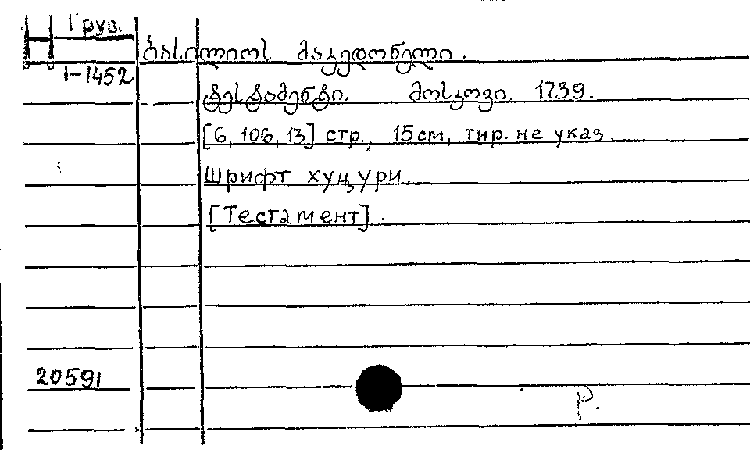 Груз.
ბასილიოს მაკედონელი.
1-1452
ტესტამენტი. მოსკოვი. 1739.
[6, 106, 13] стр., 15 см, тир. не указ.
Шрифт хуцури.
[Тестамент].
20591
Р.